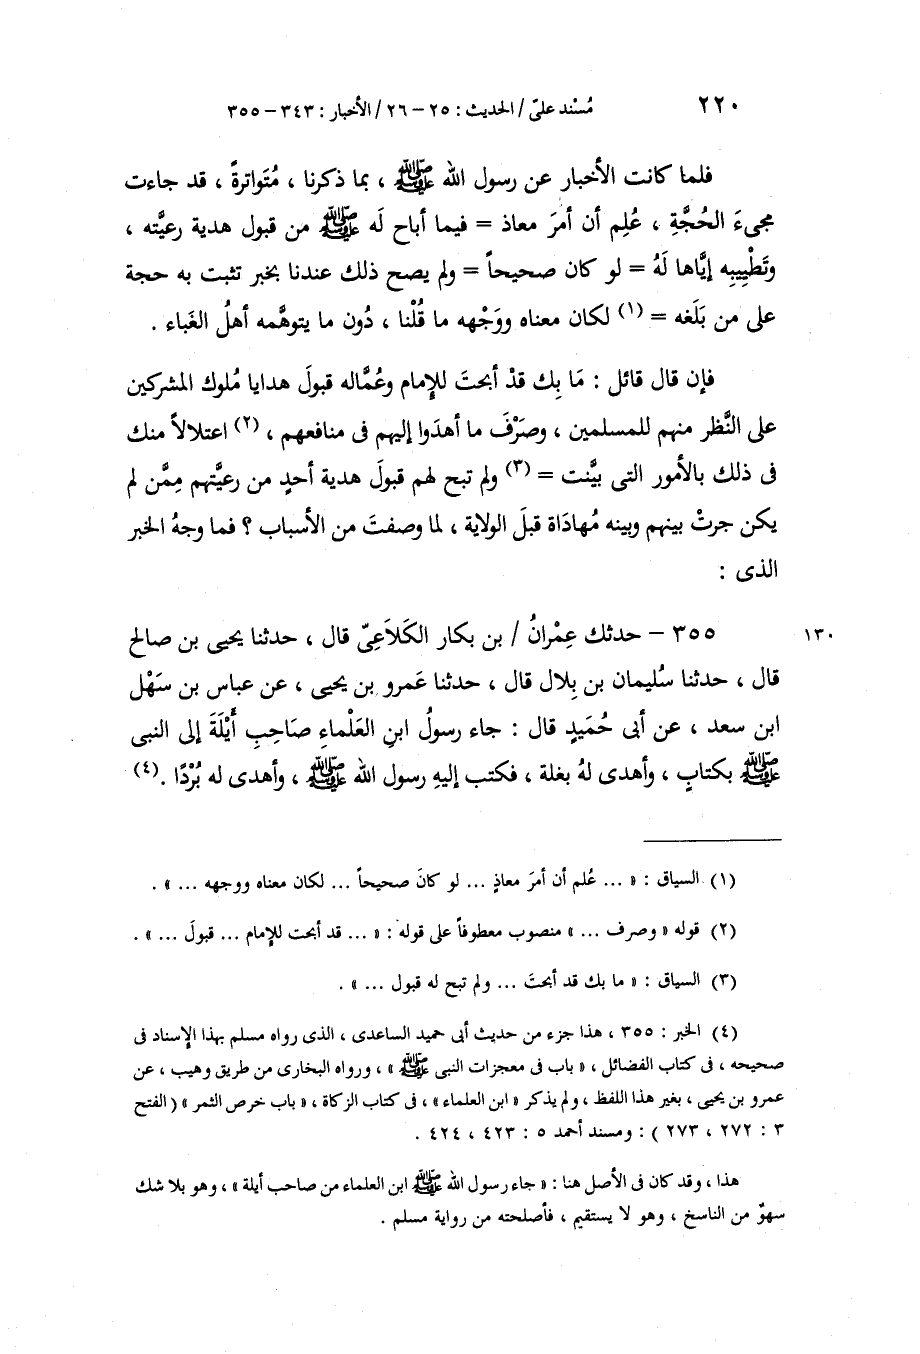 ٢٢٠ مُسْند علىّ / الحديث : ٢٥ – ٢٦ / الأخبار : ٣٤٣ – ٣٥٥
فلما كانت الأخبار عن رسول الله ﷺ ، بما ذكرنا ، مُتَواترةً ، قد جاءت
مجىءَ الحُجَّةِ ، عُلِم أن أمرَ معاذ = فيما أباح لَه ﷺ من قبول هدية رعيَّته ،
وتَطْيِيبِه إيَّاها لَهُ = لو كان صحيحاً = ولم يصح ذلك عندنا بخبر تثبت به حجة
على من بَلَغه = (١) لكان معناه ووَجْهه ما قُلْنا ، دُون ما يتوهَّمه أهلُ الغَباء .
فإن قال قائل : مَا بك قدْ أبحتَ للإمام وعُمَّاله قبولَ هدايا مُلوك المشركين
على النَّظر منهم للمسلمين ، وصرْفَ ما أهدَوا إليهم فى منافعهم ، (٢) اعتلالاً منك
فى ذلك بالأمور التى بيَّنت = (٣) ولم تبح لهم قبولَ هدية أحدٍ من رعيَّتهم مِمَّن لم
يكن جرتْ بينهم وبينه مُهادَاة قبلَ الولاية ، لما وصفتَ من الأسباب ؟ فما وجهُ الخبر
الذى :
٣٥٥ – حدثك عِمْرانُ / بن بكار الكَلاَعِىّ قال ، حدثنا يحيى بن صالح ١٣٠
قال ، حدثنا سُليمان بن بِلال قال ، حدثنا عَمرو بن يحيى ، عن عباس بن سَهْل
ابن سعد ، عن أبى حُمَيدٍ قال : جاء رسولُ ابنِ العَلْماءِ صَاحِبِ أَيْلَةَ إلى النبى
ﷺ بكتابٍ ، وأهدى لهُ بغلة ، فكتب إليهِ رسول الله ﷺ ، وأهدى له بُرْدًا . (٤)
(١) السياق : « ... عُلم أن أمرَ معاذٍ ... لو كانَ صحيحاً ... لكان معناه ووجهه ... » .
(٢) قوله « وصرف ... » منصوب معطوفاً على قوله : « ... قد أبحت للإمام ... قبولَ ... » .
(٣) السياق : « ما بك قد أبحتَ ... ولم تبح له قبول ... » .
(٤) الخبر : ٣٥٥ ، هذا جزء من حديث أبى حميد الساعدى ، الذى رواه مسلم بهذا الإسناد فى
صحيحه ، فى كتاب الفضائل ، « باب فى معجزات النبى ﷺ » ، ورواه البخارى من طريق وهيب ، عن
عمرو بن يحيى ، بغير هذا اللفظ ، ولم يذكر « ابن العلماء » ، فى كتاب الزكاة ، « باب خرص الثمر » ( الفتح
٣ : ٢٧٢ ، ٢٧٣ ) : ومسند أحمد ٥ : ٤٢٣ ، ٤٢٤ .
هذا ، وقد كان فى الأصل هنا : « جاء رسول الله ﷺ ابن العلماء من صاحب أيلة » ، وهو بلا شك
سهوٌ من الناسخ ، وهو لا يستقيم ، فأصلحته من رواية مسلم .